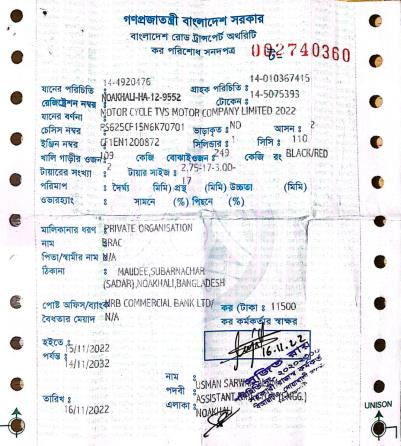 গণপ্রজাতন্ত্রী বাংলাদেশ সরকার
বাংলাদেশ রোড ট্রান্সপোর্ট অথরিটি
কর পরিশোধ সনদপত্র 002740360
যানের পরিচিতি : 14-4920476 গ্রাহক পরিচিতি : 14-010367415
রেজিস্ট্রেশন নম্বর NOAKHALI-HA-12-9552 টোকেন : 14-5075393
যানের বর্ণনা MOTOR CYCLE TVS MOTOR COMPANY LIMITED 2022
চেসিস নম্বর PS625CF15N6K70701 ভাড়াকৃত : NO আসন : 2
ইঞ্জিন নম্বর CF1EN1200872 সিলিন্ডার : 1 সিসি : 110
খালি গাড়ীর ওজন 109 কেজি বোঝাই ওজন : 249 কেজি রং BLACK/RED
টায়ারের সংখ্যা : 2 টায়ার সাইজ : 2.75-17-3.00-17
পরিমাপ : দৈর্ঘ্য মিমি) প্রস্থ (মিমি) উচ্চতা (মিমি)
ওভারহ্যাং : সামনে (%) পিছনে (%)
মালিকানার ধরণ : PRIVATE ORGANISATION
নাম BRAC
পিতা/স্বামীর নাম N/A
ঠিকানা : MAIJDEE,SUBARNACHAR
(SADAR),NOAKHALI,BANGLADESH
পোষ্ট অফিস/ব্যাংক NRB COMMERCIAL BANK LTD/ কর (টাকা : 11500
বৈধতার মেয়াদ N/A কর কর্মকর্তার স্বাক্ষর
হইতে : 15/11/2022
পর্যন্ত : 14/11/2032
16.11.22
নাম : USHAN SARW
পদবী : ASSISTANT (ENGG.)
তারিখ : 16/11/2022 এলাকা : NOAKHALI
UNISON